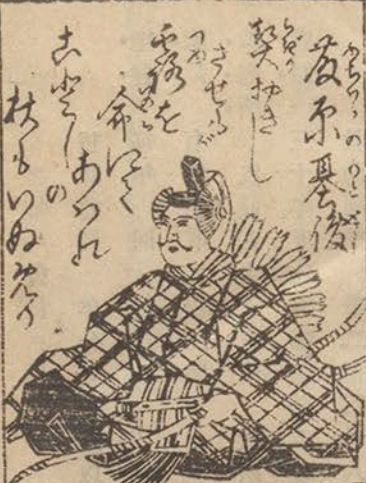 藤原基俊
契おきし
させもが
露を
命にて
あはれ
ことしの
秋もいぬめり